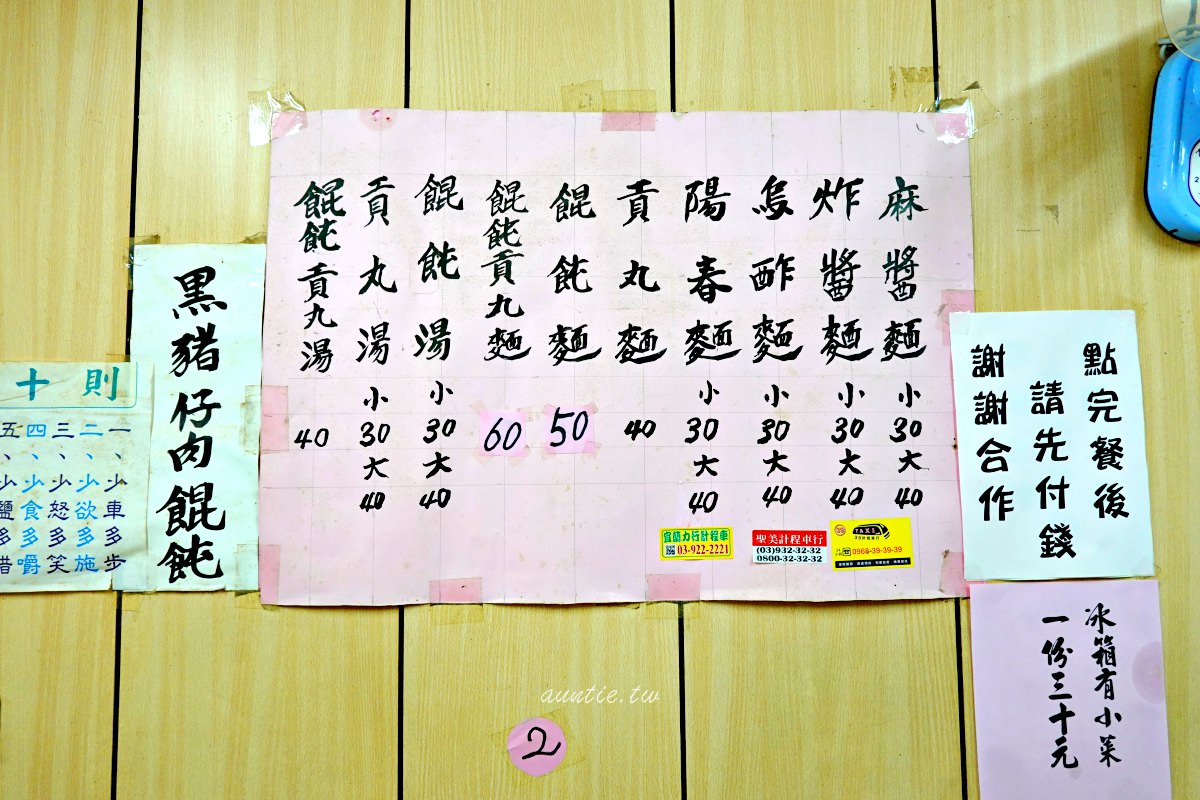 麻醬麵 小30 大40
炸醬麵 小30 大40
烏酢麵 小30 大40
陽春麵 小30 大40
貢丸麵 40
餛飩麵 50
餛飩貢丸麵 60
餛飩湯 小30 大40
貢丸湯 小30 大40
餛飩貢丸湯 40
宜蘭力行計程車
03-922-2221
聖美計程車行
(03)932-32-32
0800-32-32-32
39
TAXI
39計程車行
0968-39-39-39
點完餐後
請先付錢
謝謝合作
冰箱有小菜
一份三十元
黑豬仔肉餛飩
十則
一、少車多步
二、少欲多施
三、少怒多笑
四、少食多嚼
五、少鹽多醋
auntie.tw
2